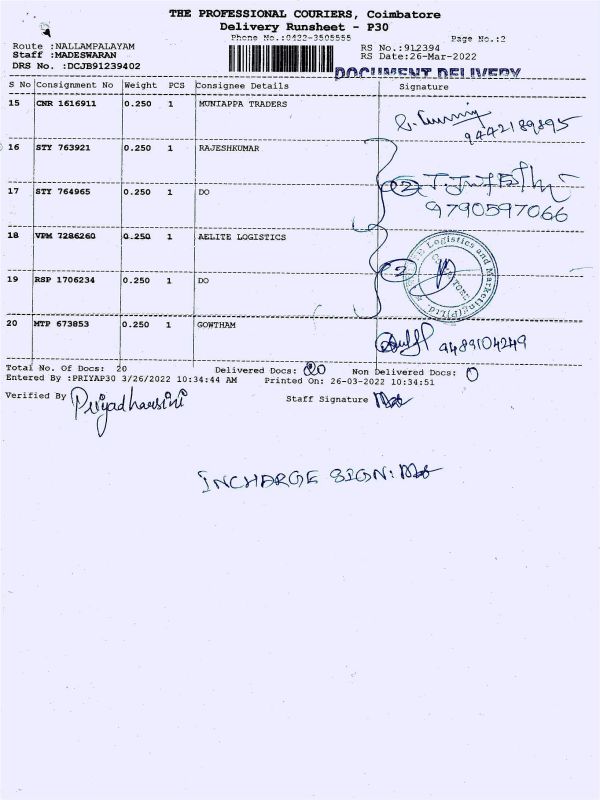 THE PROFESSIONAL COURIERS, Coimbatore
Delivery Runsheet - P30
Phone No.:0422-3505555
Page No.:2
Route :NALLAMPALAYAM
RS No.:9L2394
Staff :MADESWARAN
RS Date:26-Mar-2022
DRS No. :DCJB91239402
DOCUMENT DELIVERY
S No Consignment No Weight PCS Consignee Details Signature
15 CNR 1616911 0.250 1 MUNIAPPA TRADERS
9442189895
16 STY 763921 0.250 1 RAJESHKUMAR
17 STY 764965 0.250 1 DO
2
9790597066
18 VPM 7286260 0.250 1 AELITE LOGISTICS
Logistics and Marketing(P)Ltd.
19 RSP 1706234 0.250 1 DO
2
20 MTP 673853 0.250 1 GOWTHAM
9489104249
Total No. Of Docs: 20 Delivered Docs: 20 Non Delivered Docs: 0
Entered By :PRIYAP30 3/26/2022 10:34:44 AM Printed On: 26-03-2022 10:34:51
Verified By Priyadharsini Staff Signature
INCHARGE SIGN: